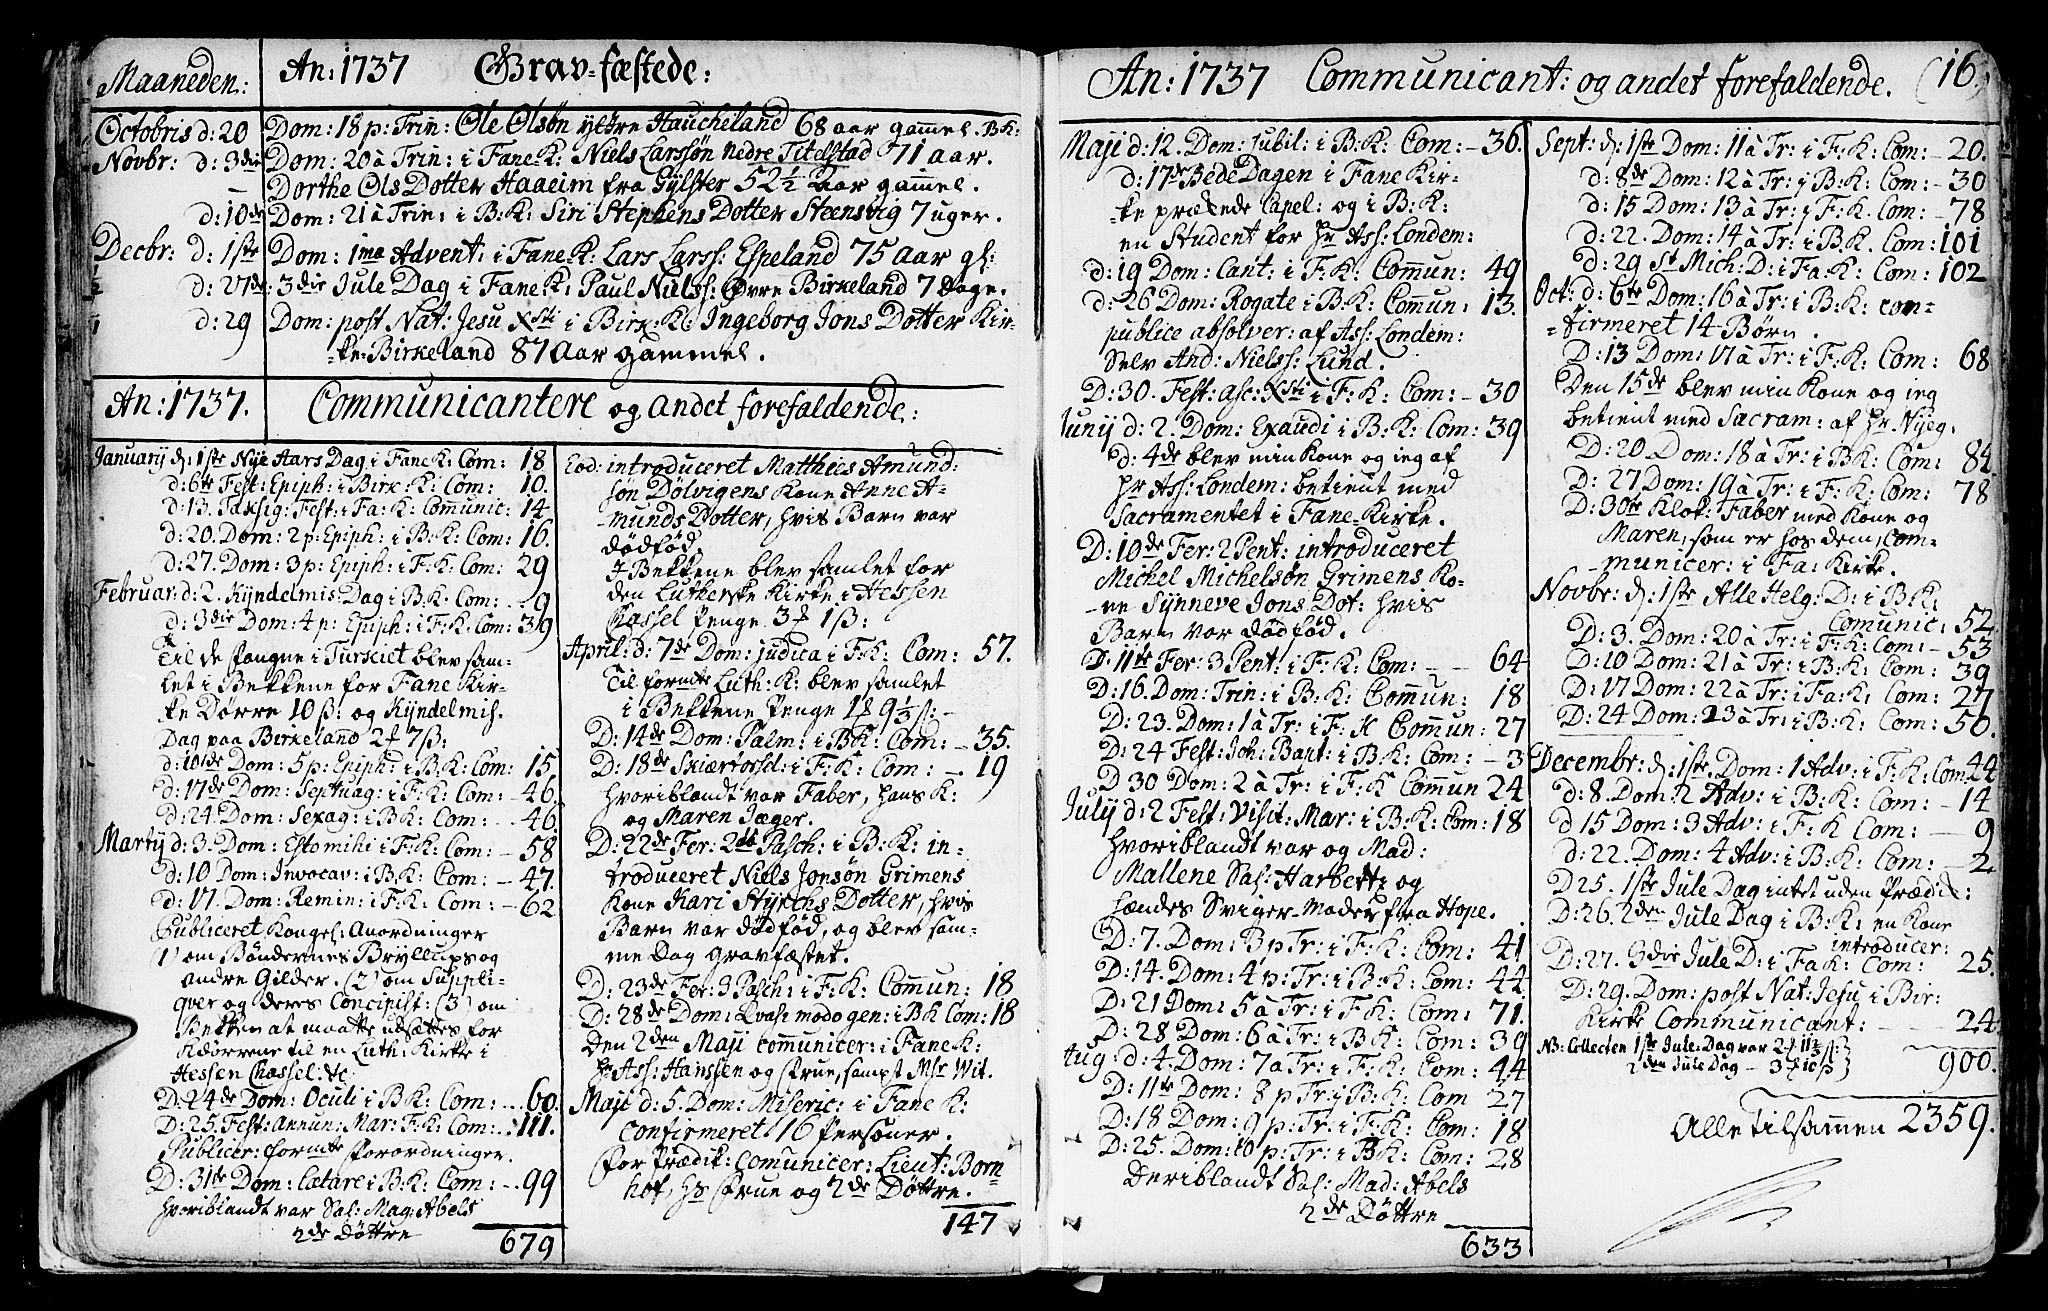 Maaneden: An: 1737 Grav-fæstede:
Octobris d: 20 Dom: 18 p: Trin: Ole Olsøn ydtre Haucheland 68 aar gammel. BK:
Novbr: d: 3die Dom: 20 à Trin: i Fane K: Niels Larssøn Nedre Titelstad 71 aar.
Dorthe Ols Dotter Haaeim fra Gylster 52½ Aar gammel.
d: 10de Dom: 21 à Trin: i B:K: Siri Stephens Dotter Steensvig 7 uger.
Decbr: d: 1ste Dom: 1ma Advent: i Fane K: Lars Larss: Espeland 75 aar gl:
d: 27de: 3die Jule Dag i Fane K: Paul Niels: Øvre Birkeland 7 Dage.
d: 29 Dom: post Nat: Jesu Xsti i Birk: K: Ingeborg Jons Dotter Kir-
ke-Birkeland 87 Aar gammel.
An: 1737. Communicantere og andet forefaldende:
January d: 1ste Nye Aars Dag i Fane K: Com: 18
d: 6te Fest: Epiph: i Birk: K: Com: 10.
d: 13. Taksig: Fest: i Fa: K: Comunic: 14
d: 20. Dom: 2 p: Epiph: i B:K: Com: 16.
d: 27. Dom: 3 p: Epiph: i F:K: Com: 29
Februar: d: 2. Kyndelmis: Dag i B:K: Com: 9
d: 3die Dom: 4 p: Epiph: i F:K: Com: 39
Til de fangne i Turkiet blev sam-
let i Bekkene for Fane Kir-
ke Dørre 10 ß: og Kyndelmis-
Dag paa Birkeland 2 7 ß:
d: 10de Dom: 5 p: Epiph: i B:K: Com: 15
d: 17de Dom: Septuag: i F:K: Com: 46.
d: 24. Dom: Sexag: i B:K: Com: 46
Marty d: 3. Dom: Esto mihi i F:K: Com: 58
d: 10 Dom: Invocav: i B:K: Com: 47.
d: 17. Dom: Remin: i F:K: Com: 62
Publiceret Kongel: Anordninger
1) om Bøndernes Bryllups og
andre Gilder. (2) om Suppli-
qver og deres Concipist: (3) om
Bekken at maatte udsættes for
Kdørrene til en Luth: Kirke i
Hessen Chassel: &c:
D: 24de Dom: Oculi i B:K: Com: 60.
D: 25. Fest: Annun: Mar: F:K: Com: 111.
Publicer: formte forordninger.
D: 31te Dom: Lætare i B:K: Com: 99
hvoriblandt var Sal: Mag: Abels
2de Døttre
679
Eod: introduceret Matthies Amund-
søn Dølvigens Kone Anne A-
munds Dotter, hvis Barn var
dødfød.
I Bekkene blev samlet for
den Lutherske Kirke i Hessen
Cassel Penge 3 1 ß:
April: d: 7de Dom: judica i F:K: Com: 57.
Til formte Luth: K: blev samlet
i Bekkene Penge 1 9⅓ ß:
D: 14de Dom: Palm: i B:K: Com: 35.
D: 18de Skiærtorsd: i F:K: Com: 19
hvoriblandt var Faber, hans K:
og Maren Jæger.
D: 22de Fer: 2da Pasch: i B:K: in-
troduceret Niels Jonsøn Grimens
Kone Kari Styrchs Dotter, hvis
Barn var dødfød, og blev sam-
me Dag gravfæstet.
D: 23de Fer: 3 Pasch: i F:K: Comun: 18
D: 28de Dom: Qvasi modo gen: i BK Com: 18
Den 2den Maji comunicer: i Fane K:
Hr Ass: Hanssen og frue, sampt Msr Wit.
Maji d: 5. Dom: Miseric: i Fane K:
Confirmeret 16 Personer.
For Prædik: comunicer: Lieut: Born-
hof, hs frue og 2de Døttre.
147
An: 1737 Communicant: og andet forefaldende. (16.)
Maji d: 12. Dom: jubil: i B:K: Com: 36.
d: 17de Bede Dagen i Fane Kir-
ke prækede Capel: og i B:K:
en Student for Hr Ass: Londem:
d: 19 Dom: Cant: i F:K: Comun: 49
d: 26 Dom: Rogate i B:K: Comun: 13.
publice absolver: af Ass: Londem:
Selv And: Nielss: Lund.
D: 30. Fest: asc: Xsti i F:K: Com: 30
Juny d: 2. Dom: Exaudi i B:K: Com: 39
d: 4de blev min Kone og ieg af
Hr Ass: Londem: betient med
Sacramentet i Fane-Kirke.
D: 10de Fer: 2 Pent: introduceret
Mickel Michelsøn Grimens Ko-
ne Synneve Jons Dot: hvis
Barn var dødfød.
D: 11te Fer: 3 Pent: i F:K: Com: 64
D: 16. Dom: Trin: i B:K: Comun: 18
D: 23. Dom: 1 à Tr: i F:K Comun: 27
D: 24 Fest: Joh: Bapt: i B:K: Com: 3
D 30 Dom: 2 à Tr: i F:K Comun 24
July d: 2 Fest: Visit: Mar: i B:K: Com: 18
hvoriblandt var og Mad:
Mallene Sal: Harbetts og
hendes Sviger-Moder fra Hope.
D: 7. Dom: 3 p Tr: i F:K: Com: 41
D: 14. Dom: 4 p: Tr: i B:K: Com: 44
D: 21 Dom: 5 à Tr: i F:K: Com: 71.
D: 28 Dom: 6 à Tr: i B:K: Com: 39
Aug: d: 4. Dom: 7 à Tr: i F:K: Com: 44
D: 11te Dom: 8 p Tr: i B:K: Com 27
D: 18 Dom: 9 p: Tr: i F:K: Com: 18
D: 25. Dom: 10 p: Tr: i B:K: Com: 28
Deriblandt Sal: Mad: Abels
2de Døttre
633
Sept: d: 1ste Dom: 11 à Tr: i F:K: Com: 20.
d: 8de Dom: 12 à Tr: i B:K: Com: 30
d: 15 Dom: 13 à Tr: i F:K. Com: 78
d: 22. Dom: 14 à Tr: i B:K. Com: 101
d: 29 St Mich: D: i Fa: K: Com: 102
Oct: d: 6te Dom: 16 à Tr: i B:K: con-
firmeret 14 Børn.
D: 13 Dom: 17 à Tr: i F:K: Com: 68
Den 15de blev min Kone og ieg
betient med Sacram: af Hr Nyeg.
D: 20 Dom: 18 à Tr: i B:K: Com: 84
D: 27 Dom: 19 à Tr: i F:K: Com: 78
D: 30te Klok: Faber med Kone og
Maren, som er hos dem, Com-
municer: i Fa: Kirke.
Novbr: d: 1ste Alle Helg: D: i B:K:
Comunic: 52
D: 3. Dom: 20 à Tr: i F:K: Com: 53
D: 10 Dom: 21 à Tr: i B:K: Com: 39
D: 17 Dom: 22 à Tr: i Fa:K: Com: 27
D: 24 Dom: 23 à Tr: i B:K: Com: 50.
Decembr: d: 1ste Dom: 1 Adv: i F:K: Com 44
d: 8. Dom: 2 Adv: i B:K: Com: 14
d 15 Dom: 3 Adv: i F:K Com: 9
d: 22. Dom: 4 Adv: i B:K: Com: 2
D 25. 1ste Jule Dag intet uden Prædik:
D: 26. 2den Jule Dag i B:K: en Kone
introducer:
D: 27. 3die Jule D: i Fa K: Com: 25.
D: 29. Dom: post Nat: Jesu i Bir:
Kirke Communicant: 24
NB: Collecten 1ste Jule-Dag var 2 11½ ß:
2den Jule Dag 3 10 ß
900.
Alle tilsamen 2359.